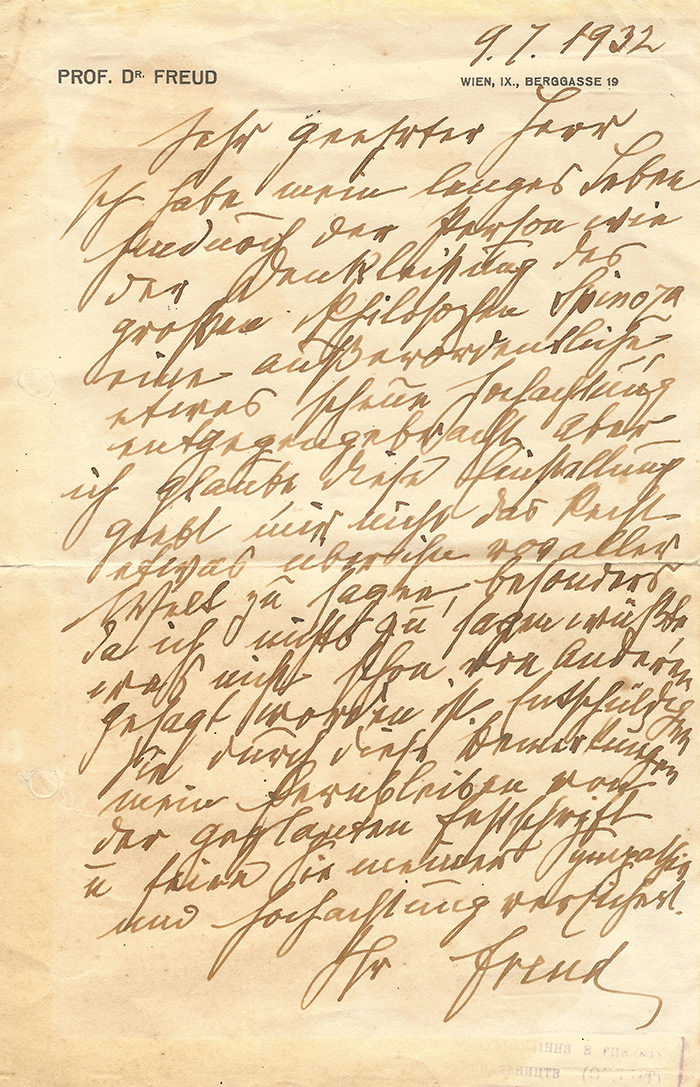 9.7.1932
PROF. DR. FREUD
WIEN, IX., BERGGASSE 19
Sehr geehrter Herr
Ich habe mein langes Leben
hindurch der Person wie
der Denkleistung des
großen Philosophen Spinoza
eine außerordentliche
etwas scheue Hochachtung
entgegengebracht. Aber
ich glaube diese Einstellung
giebt mir nicht das Recht
etwas über ihn vor aller
Welt zu sagen, besonders
da ich nichts zu sagen wüßte
was nicht schon von Anderen
gesagt worden ist. Entschuldigen
Sie durch diese Bemerkungen
mein Fernbleiben von
der geplanten Festschrift
u seien Sie meiner Sympathie
und Hochachtung versichert.
Ihr Freud